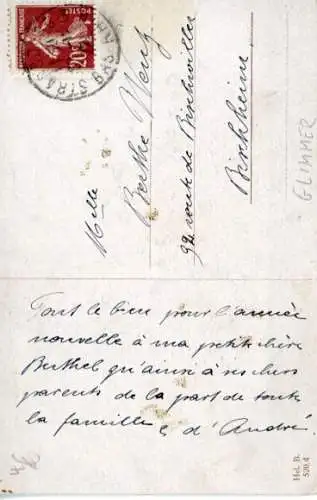 POSTES
20c
Mlle
Berthe Wenz
92 route de Bischwiller
Bischheim
GLIMMER
Tout le bien pour l'année
nouvelle à ma petite chère
Berthel qu'ainsi à ses chers
parents de la part de toute
la famille e d'André.
Hel. B.
520,4